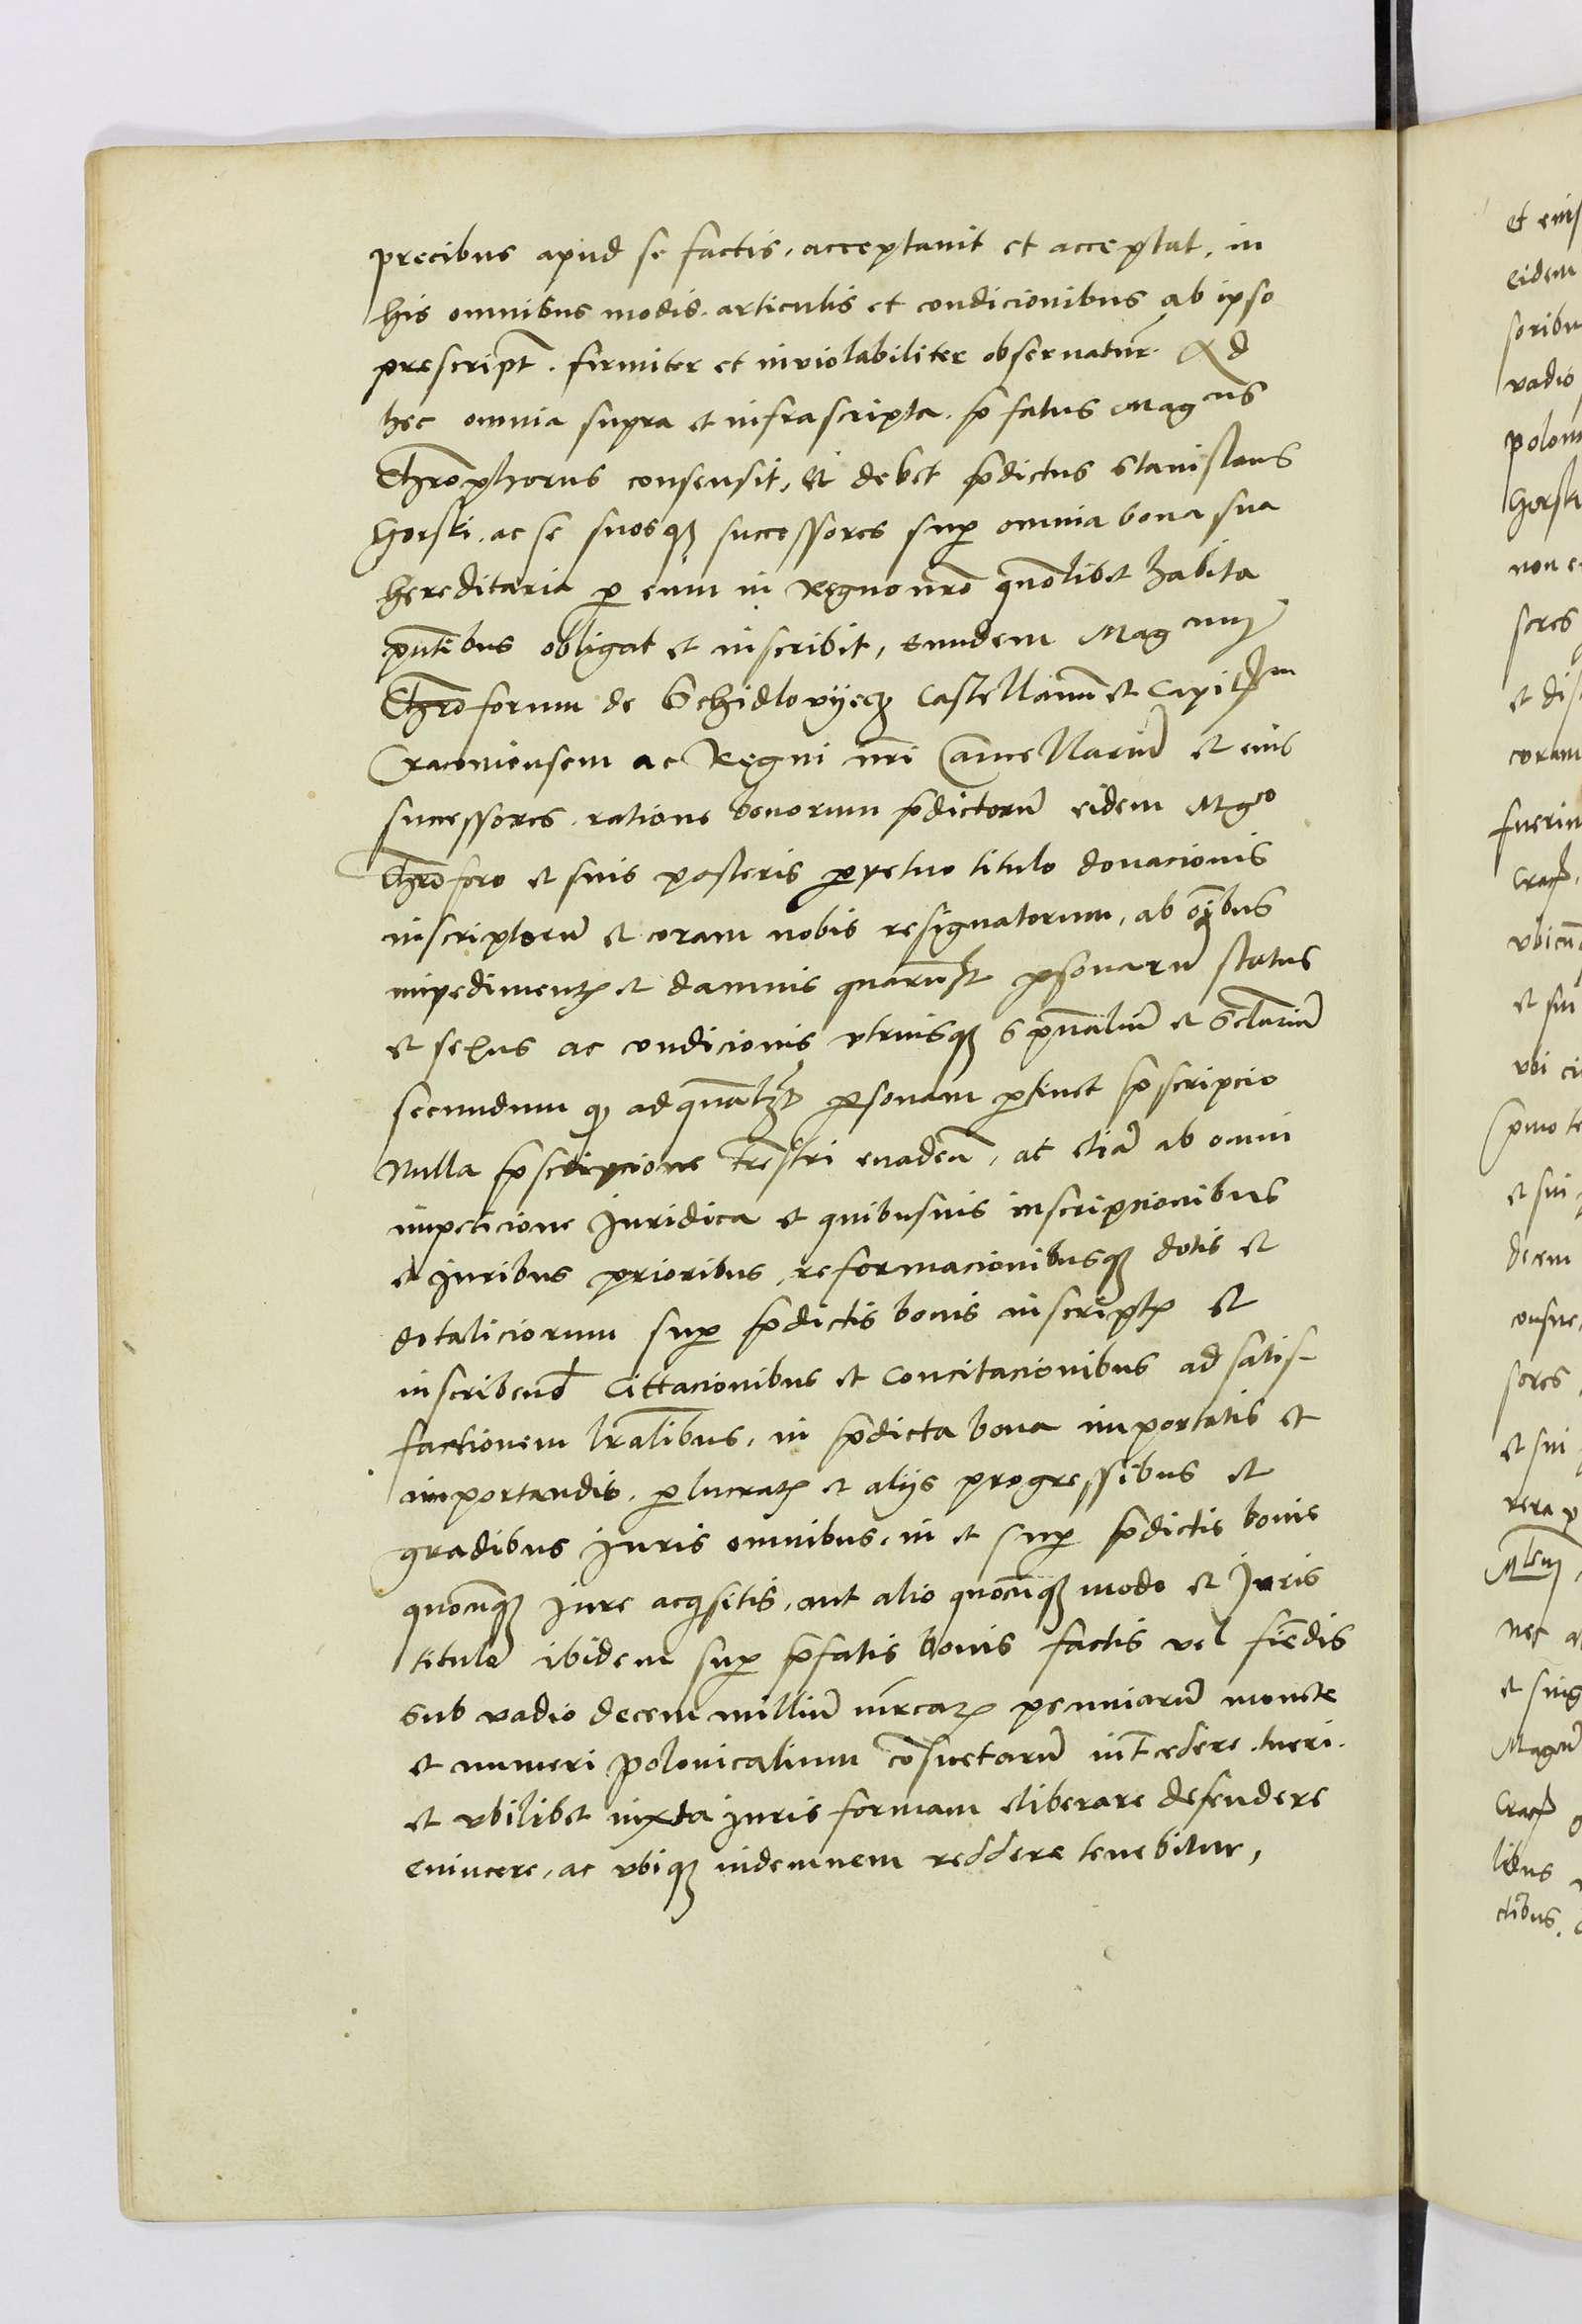 precibus apud se factis, acceptauit et acceptat, in
his omnibus modis, articulis et condicionibus ab ipso
prescript. firmiter et inviolabiliter obseruatur. Ad
hec omnia supra et infrascripta, p̄fatus Mag^cus
Chrōphorus consensit, et debet p̄dictus Stanislaus
Gorski, ac se suosqꝫ successores suꝑ omnia bona sua
hereditaria ꝑ eum in Regno nrō quōlibet habita
pn̄tibus obligat et inscribit, eundem Mag^cum
Chrōforum de Schidlovyecz Castellanū et Capit^m
Cracouiensem ac Regni nrī Cancellariū et eius
successores, ratione bonorum p̄dictorū eidem Mg^co
Chrōforo et suis posteris ꝑpetuo titulo donacionis
inscriptorū et coram nobis resignatorum, ab oībus
impedimentꝭ et damnis quarūlꝫt ꝑsonarū status
et sexus ac condicionis vtriusqꝫ spūaliū et sēclariū
secundum qꝫ ad quālꝫt ꝑsonam ꝑtinet p̄scripcio
Nulla p̄scripcione tr̄estri euadeñ, ac etiā ab omni
impeticione Juridica et quibusuis inscripcionibus
et Juribus prioribus, reformacionibusqꝫ dotis et
dotaliciorum suꝑ p̄dictis bonis inscriptꝭ et
inscribend̄ Cittacionibus et Concitacionibus ad satis-
factionem lr̄alibus, in p̄dicta bona importatis et
importandis, ꝑlucratꝭ et alijs progressibus et
gradibus Juris omnibus, in et suꝑ p̄dictis bonis
quocūqꝫ Jure acqͥsitis, aut alio quocūqꝫ modo et Juris
titulo ibidem suꝑ p̄fatis bonis factis vel fiēdis
sub vadio decem milliū mr̄carꝫ pecuniarū monete
et numeri polonicalium cōsuetarū int̄cedere, tueri,
et vbilibet iuxta Juris formam eliberare defendere
euincere, ac vbiqꝫ indemnem reddere tenebitur,
et eius
eidem
soribu
vadio
polon
Gorski
non e
sores
et dis
coram
fuerin
Crac̄,
vbicūn
et sui
vbi ci
et sui
decem
consue
sores
et sui
rera p
nec a
et sing
Magcū
Crac̄
libus
ctibus.